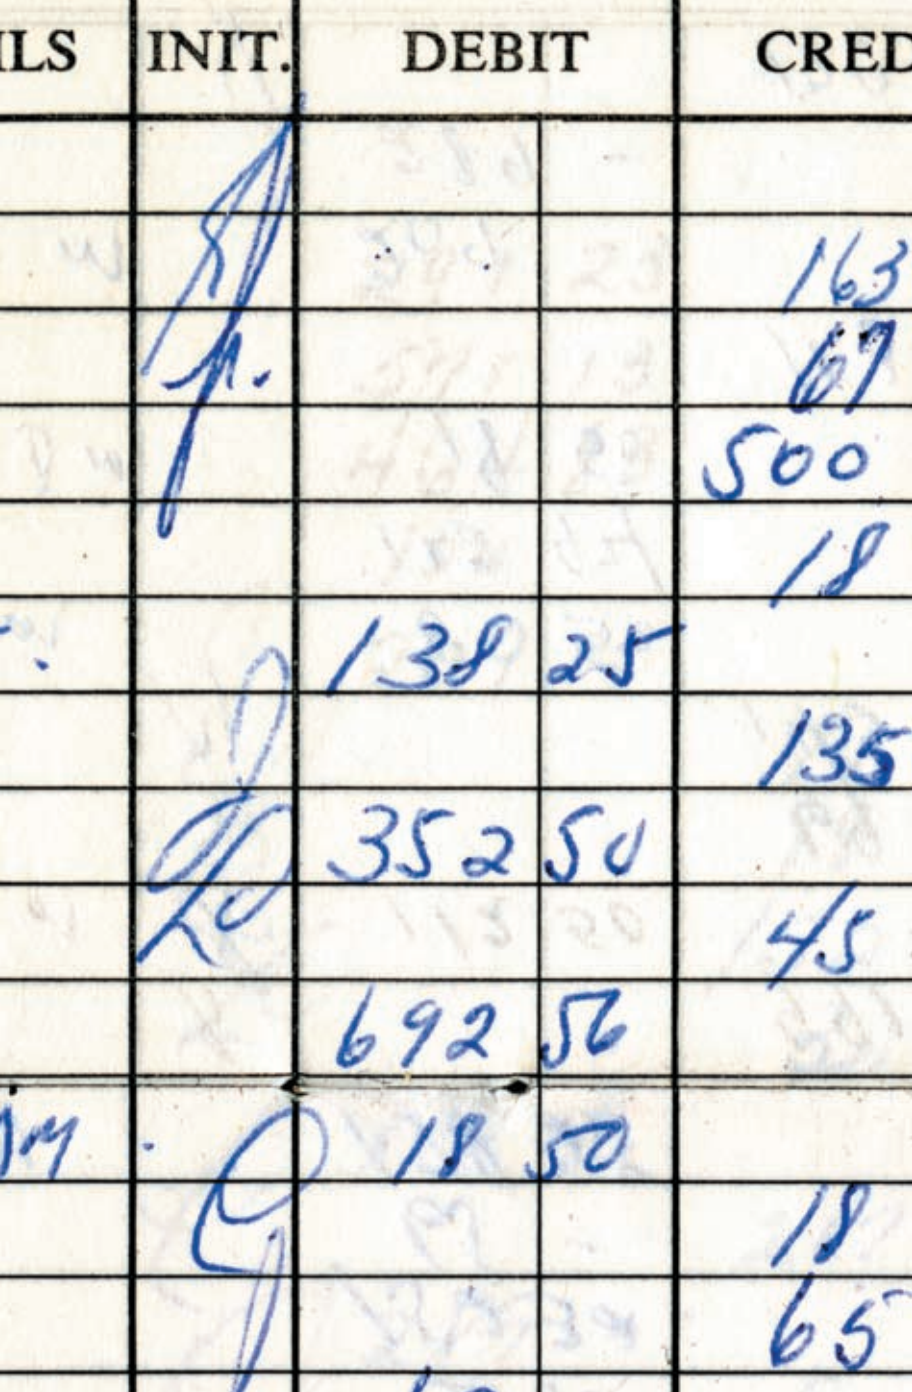 ILS INIT. DEBIT CRED
163
67
500
18
138 25
135
352 50
45
692 56
18 50
18
65